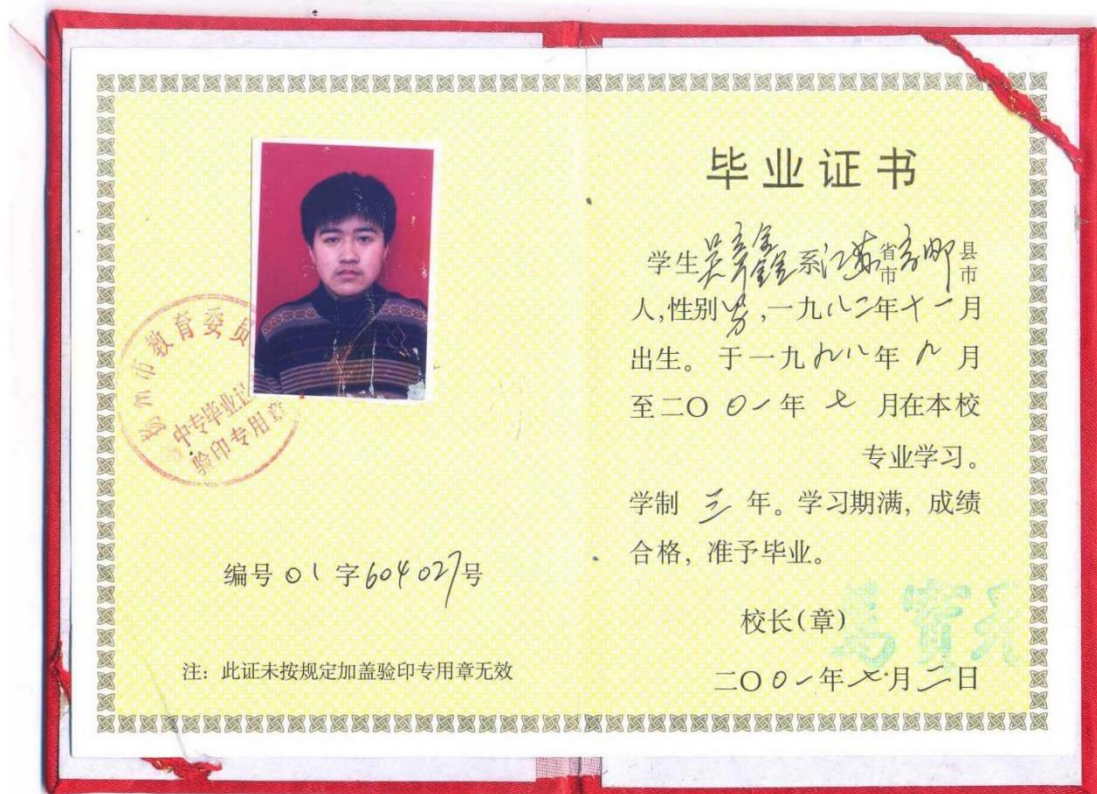 扬州市教育委员
中专毕业证
验印专用章
编号 01 字 604027 号
注：此证未按规定加盖验印专用章无效
毕业证书
学生 吴鑫 系 江苏 省市 高邮 县市
人，性别 男，一九八二年十一月
出生。于一九九八年九月
至二〇〇一年七月在本校
专业学习。
学制 三 年。学习期满，成绩
合格，准予毕业。
校长（章）
二〇〇一年七月二日